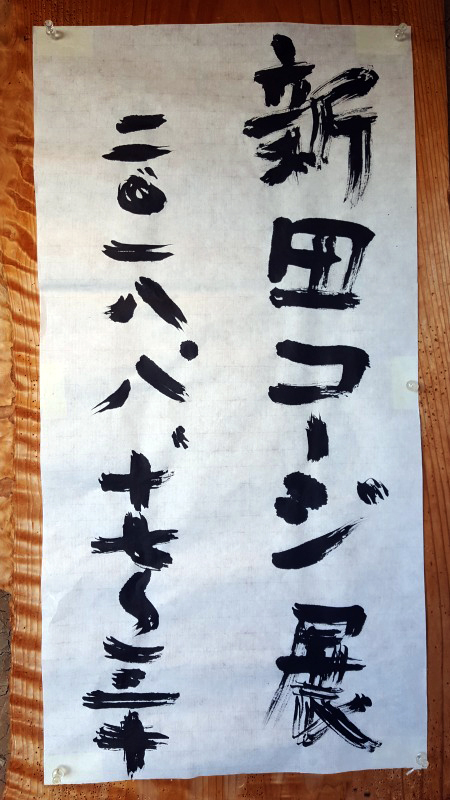 新田コージ展
二〇一八.八.十七〜三十